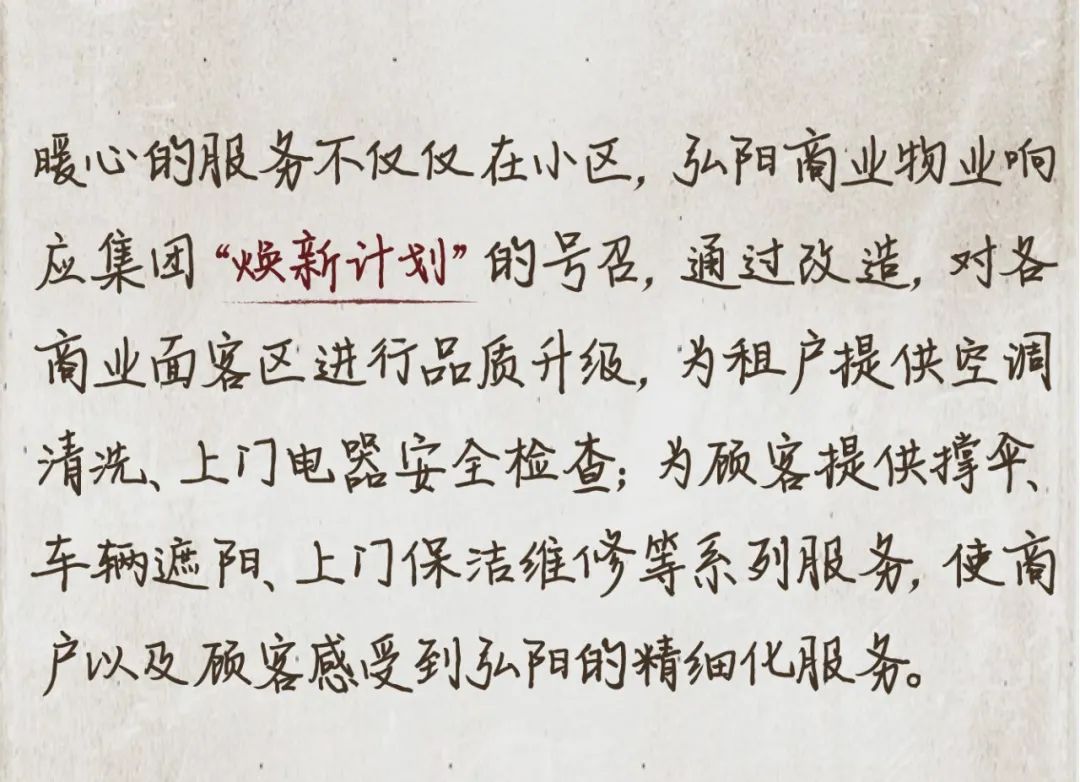 暖心的服务不仅仅在小区，弘阳商业物业响
应集团“焕新计划”的号召，通过改造，对各
商业面客区进行品质升级，为租户提供空调
清洗、上门电器安全检查；为顾客提供撑伞、
车辆遮阳、上门保洁维修等系列服务，使商
户以及顾客感受到弘阳的精细化服务。